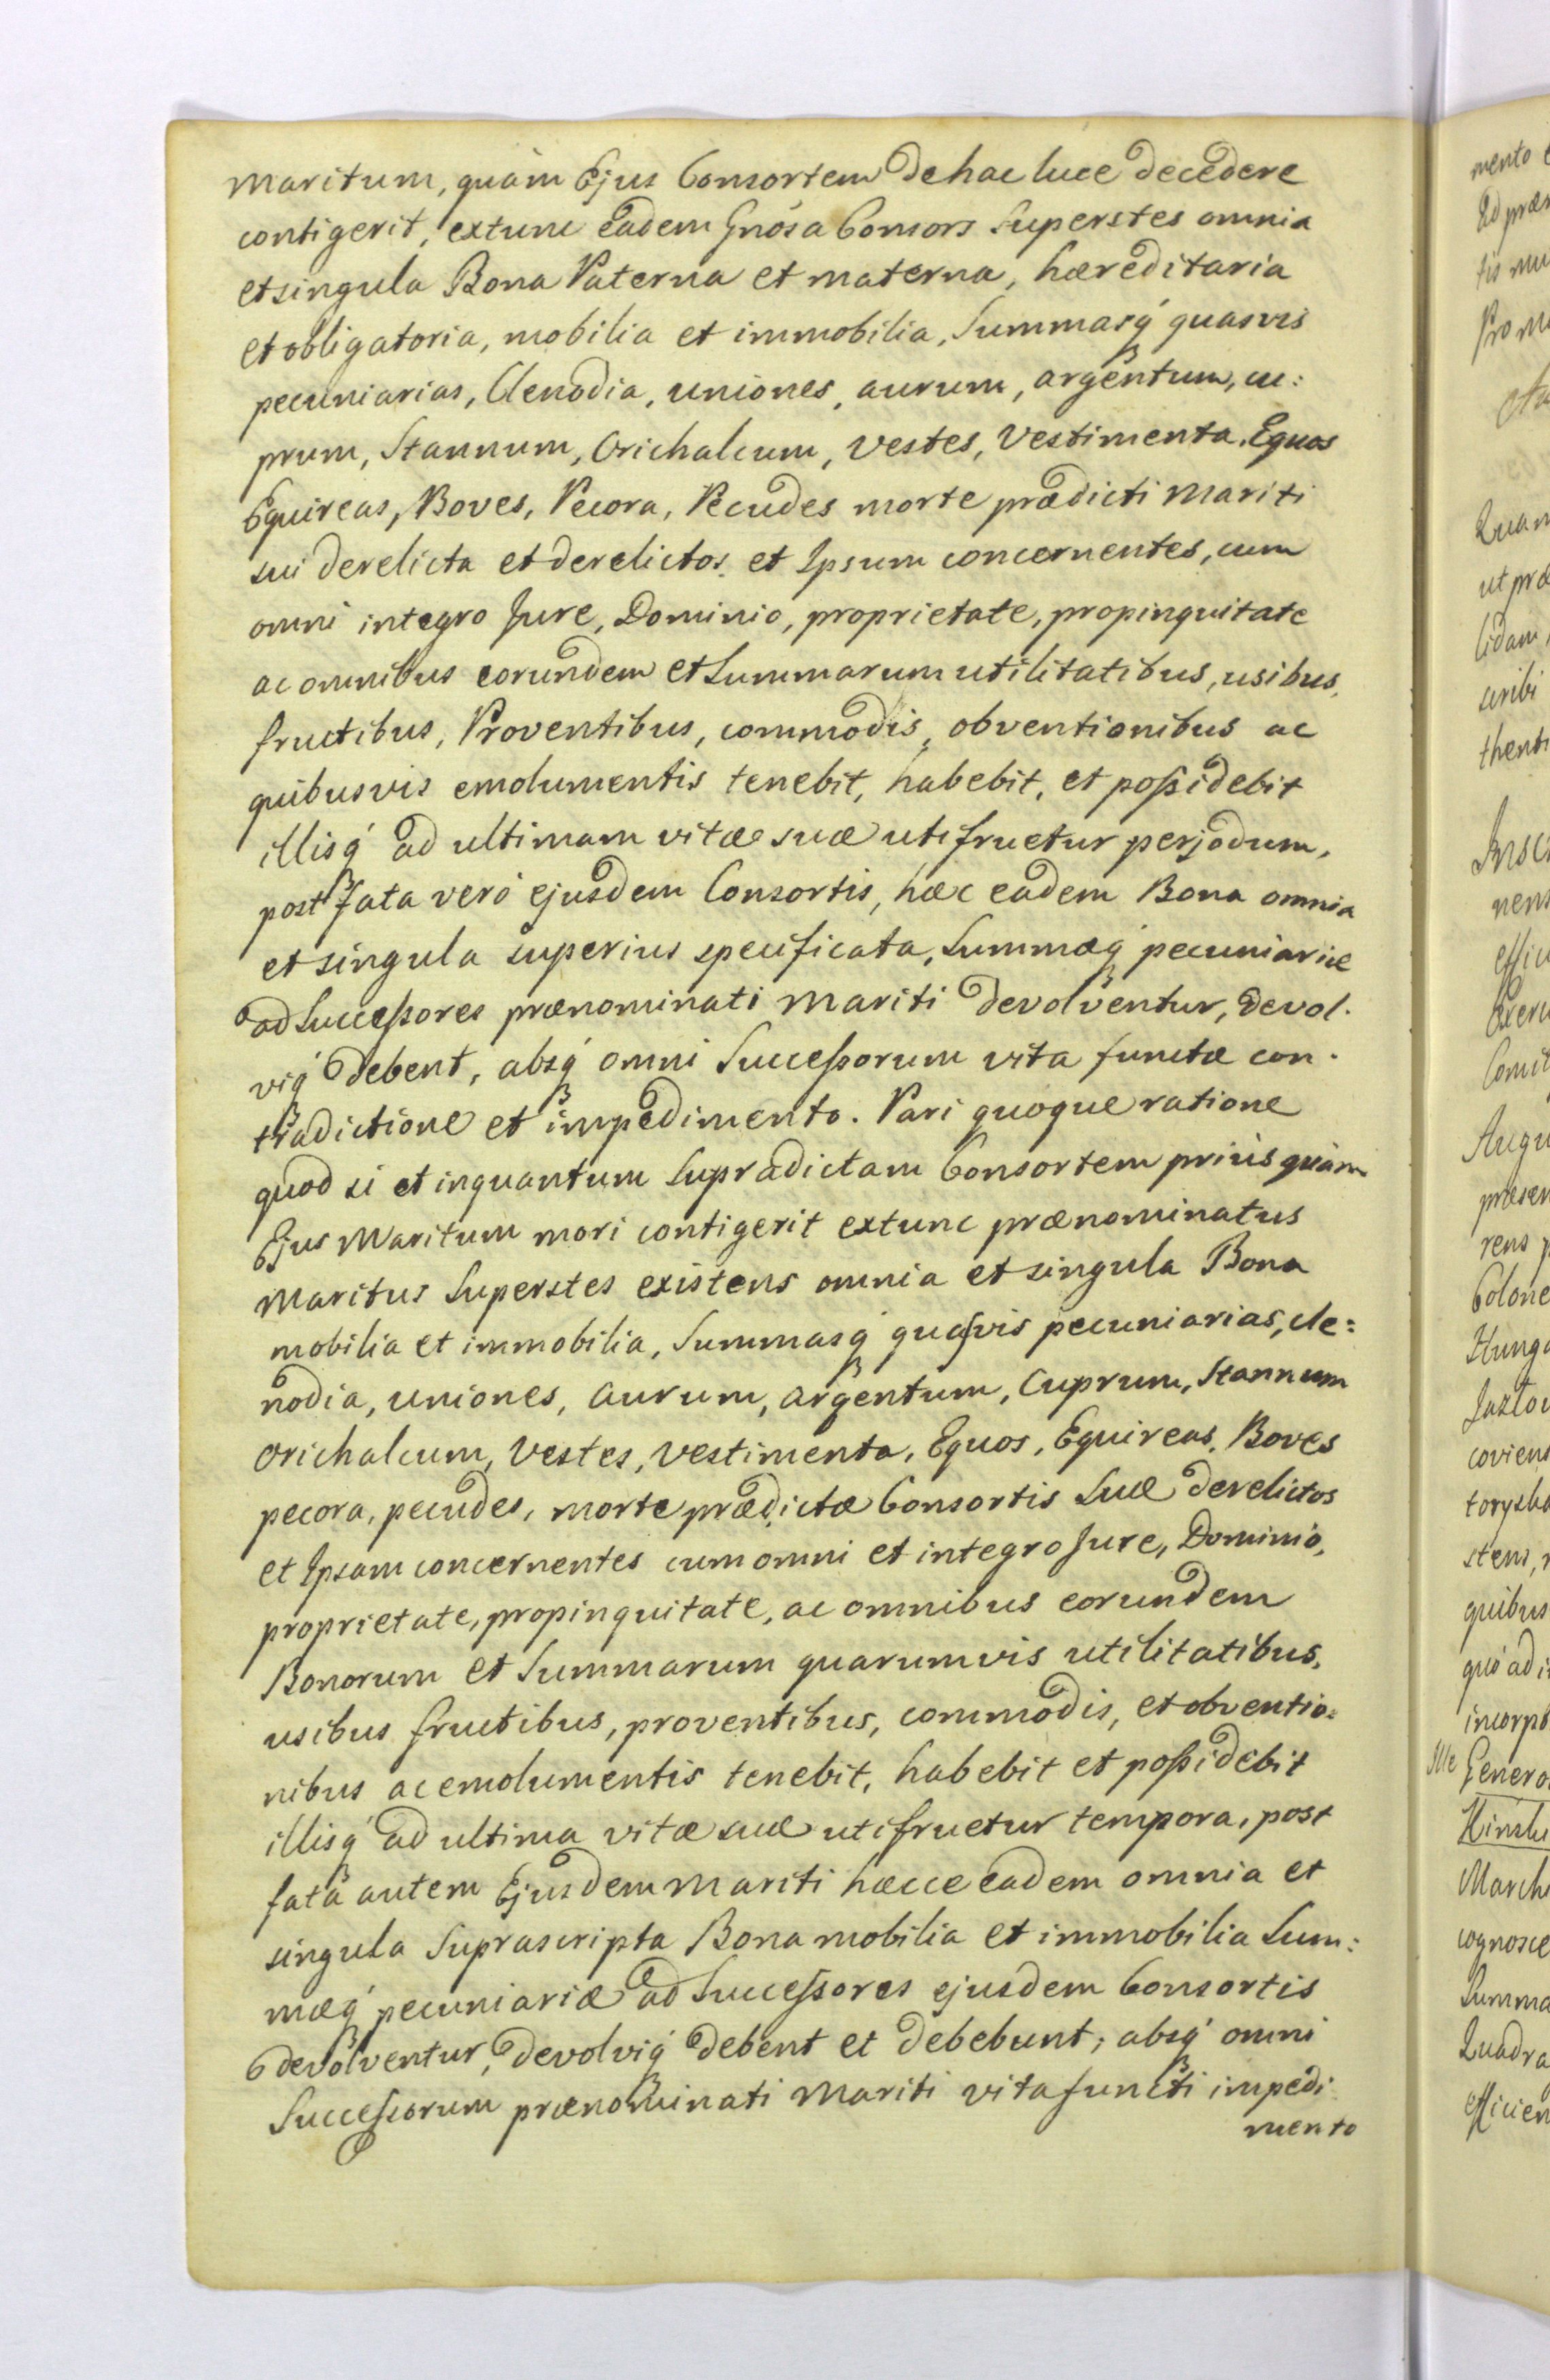 maritum, quàm Ejus Consortem de hac luce decedere
contigerit, extunc eadem Gnosa Consors Superstes omnia
et singula Bona Paterna et materna, hæreditaria
et obligatoria, mobilia et immobilia, Summasq́ quasvis
pecuniarias, Clenodia, uniones, aurum, argentum, cu:
prum, Stannum, Orichalcum, vestes, Vestimenta, Equos
Equireas, Boves, Pecora, Pecudes morte prædicti mariti
sui derelicta et derelictos, et Ipsum concernentes, cum
omni integro Jure, Dominio, proprietate, propinquitate
ac omnibus eorundem et Summarum utilitatibus, usibus,
fructibus, Proventibus, commodis, obventionibus ac
quibusvis emolumentis tenebit, habebit, et poßidebit
illisq́ ad ultimam vitæ suæ utifruetur perjodum,
post fata verò ejusdem Consortis, hæc eadem Bona omnia
et singula superius specificata, Summæq́ pecuniariæ
ad Succeßores prænominati mariti devolventur, devol.
viq́ debent, absq́ omni Succeßorum vita functæ con.
tradictione et impedimento. Pari quoque ratione
quod si et inquantum Supradictam Consortem priùs quàm
Ejus Maritum mori contigerit extunc prænominatus
Maritus Superstes existens omnia et singula Bona
mobilia et immobilia, Summasq́ quasvis pecuniarias, cle:
nodia, uniones, aurum, argentum, Cuprum, Stannum
Orichalcum, Vestes, Vestimenta, Equos, Equireas, Boves
pecora, pecudes, morte prædictæ Consortis Suæ derelictos
et Ipsam concernentes cum omni et integro Jure, Dominio,
proprietate, propinquitate, ac omnibus eorundem
Bonorum et Summarum quarumvis utilitatibus,
usibus fructibus, proventibus, commodis, et obventio:
nibus ac emolumentis tenebit, habebit et poßidebit
illisq́ ad ultima vitæ suæ utifruetur tempora, post
fata autem Ejusdem Mariti hæcce eadem omnia et
singula Suprascripta Bona mobilia et immobilia Sum:
mæq́ pecuniariæ ad Succeßores ejusdem Consortis
devolventur, devolviq́ debent et debebunt; absq́ omni
Succeßorum prænominati Mariti vita functi impedi
mento
mento
ut præ
Comit
præsen
Hung
quibus
quò ad i
Genero
cognosce
Summa
Quadra
efficien